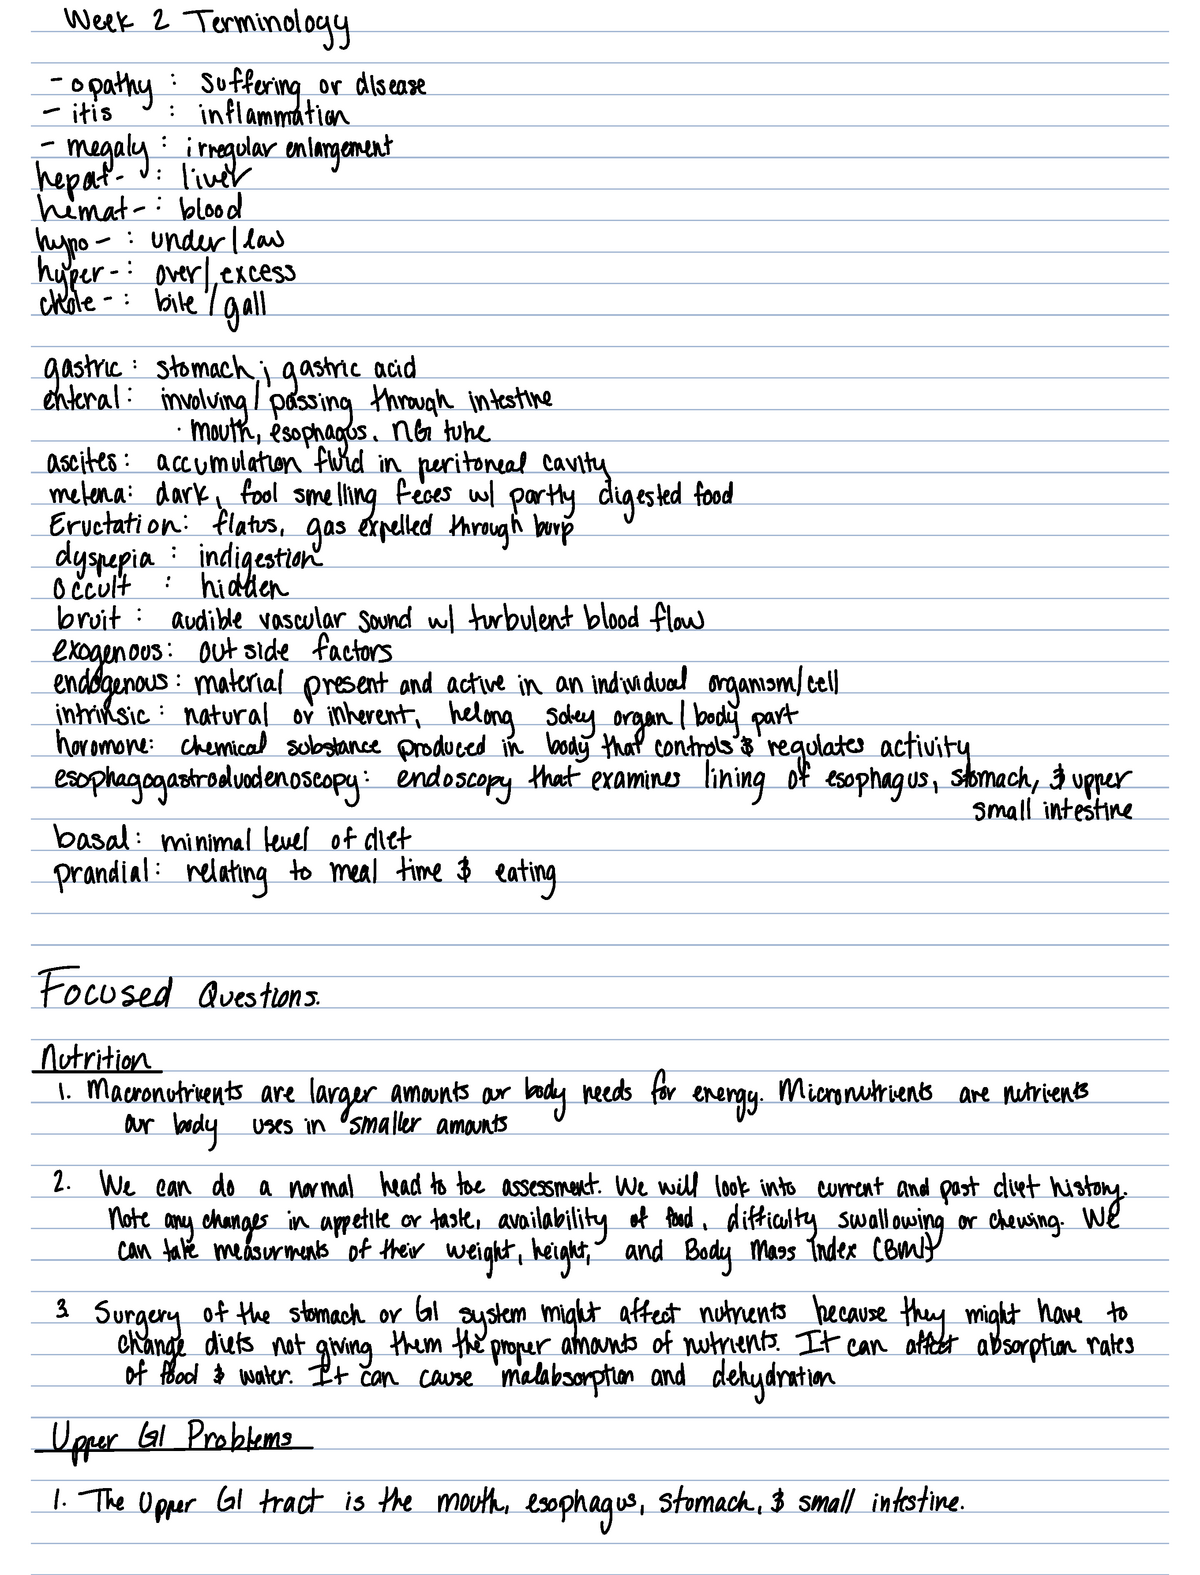 Week 2 Terminology
- opathy : suffering or disease
- itis : inflammation
- megaly : irregular enlargement
hepat- : liver
hemat- : blood
hypo- : under/law
hyper- : over/excess
chole- : bile/gall
gastric : stomach ; gastric acid
enteral : involving/passing through intestine
· mouth, esophagus, NG tube
ascites : accumulation fluid in peritoneal cavity
melena: dark, fool smelling feces w/ partly digested food
Eructation: flatus, gas expelled through burp
dyspepia : indigestion
occult : hidden
bruit : audible vascular sound w/ turbulent blood flow
exogenous: outside factors
endogenous : material present and active in an individual organism/cell
intrinsic : natural or inherent, belong soley organ/body part
horomone: chemical substance produced in body that controls & regulates activity
esophagogastroduodenoscopy: endoscopy that examines lining of esophagus, stomach, & upper
small intestine
basal: minimal level of diet
prandial: relating to meal time & eating
Focused Questions.
Nutrition
1. Macronutrients are larger amounts our body needs for energy. Micronutrients are nutrients
our body uses in smaller amounts
2. We can do a normal head to toe assessment. We will look into current and past diet history.
Note any changes in appetite or taste, availability of food, difficulty swallowing or chewing. We
can take measurments of their weight, height, and Body Mass Index (BMI)
3. Surgery of the stomach or GI system might affect nutrients because they might have to
change diets not giving them the proper amounts of nutrients. It can affect absorption rates
of food & water. It can cause malabsorption and dehydration
Upper GI Problems
1. The Upper GI tract is the mouth, esophagus, stomach, & small intestine.